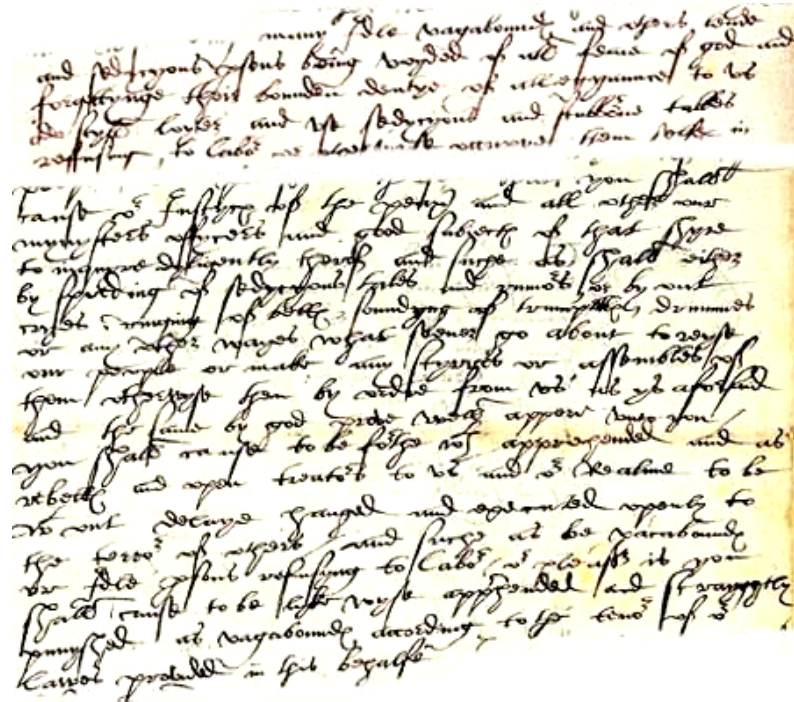 many Idle vagaboundes and others lewde
and sedycyous psons being voyded of all feare of god and
forgettynge their bounden deutye of allegeaunce to us
do styll loyter and use sedycyous and tales
refusing to labor or otherwise occupye them selfe in
you shall
cause or Justyces of the peax and all other our
mynysters offycers and good subjects of that shyre
to inquyre diligently therof and suche as shall either
by spreding of sedycyous tales and rumors or by out
cryes ringing of bells soundyng of trumpetts drummes
or any other wayes what soever go about to reyse
our people or make any styrres or assembles of
them otherwyse then by ordre from us as ys aforsaid
and the same by god prove well appere unto you
you shall cause to be forthe wt apprehended and as
rebells and open treators to us and or Realme to be
wt out delaye hanged and executed openly to
the terror of others and suche as be vacabounds
or Idle psons refusing to labor or pleasr is you
shall cause to be lyke wyse apphended and straytly
punyshed as vagabounds according to the tenor of or
lawes provided in this behalfe